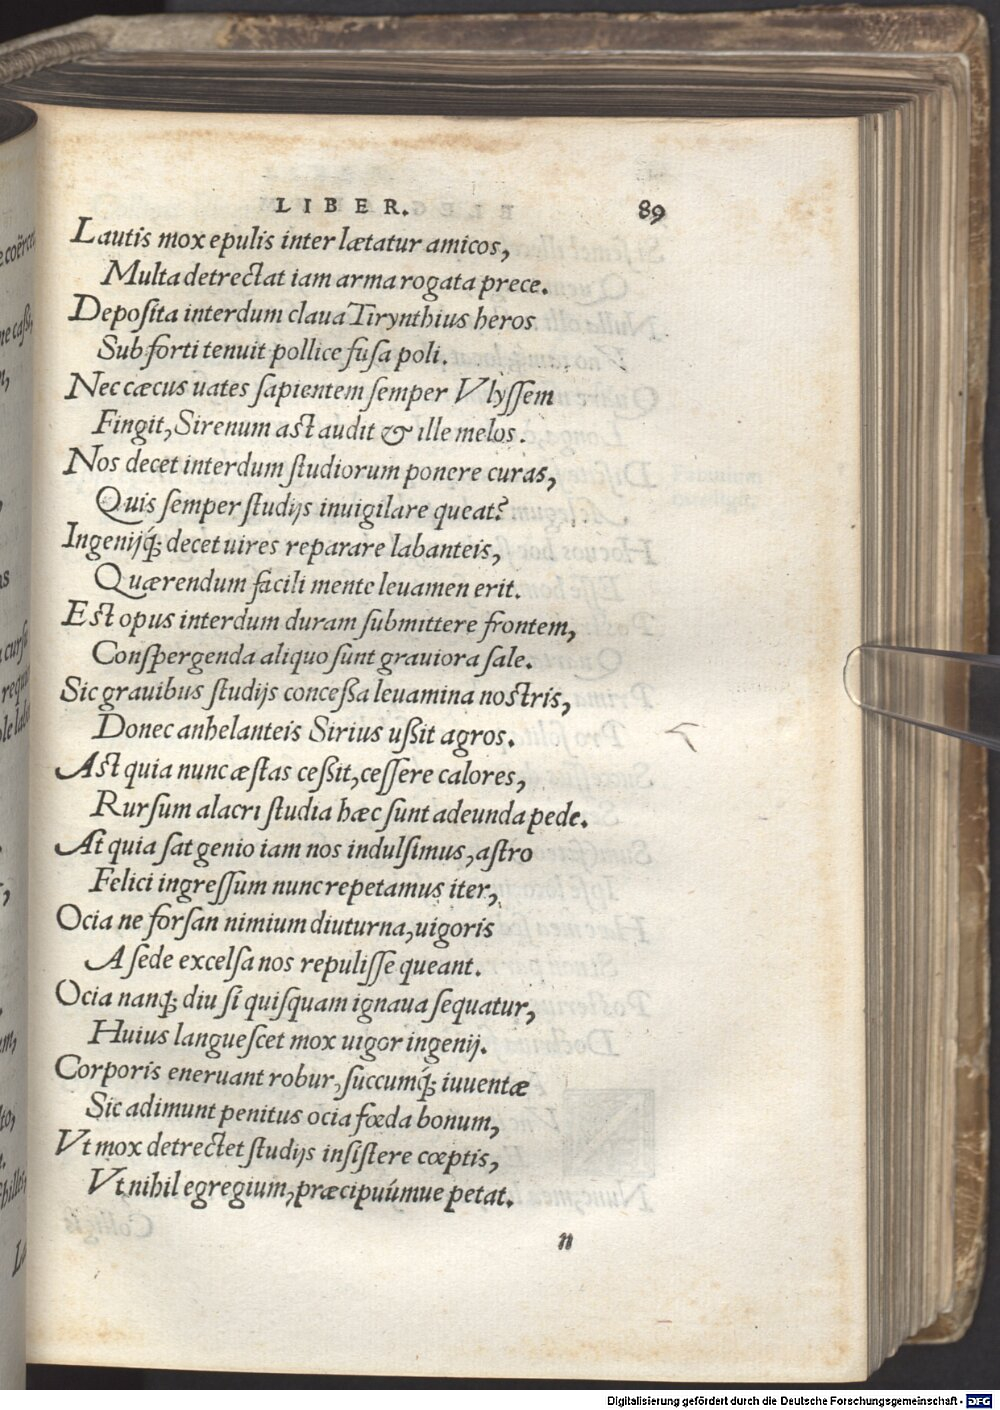 LIBER. 89
Lautis mox epulis inter lætatur amicos,
Multa detrectat iam arma rogata prece.
Deposita interdum claua Tirynthius heros
Sub forti tenuit pollice fusa poli.
Nec cæcus uates sapientem semper Vlyssem
Fingit, Sirenum ast audit & ille melos.
Nos decet interdum studiorum ponere curas,
Quis semper studijs inuigilare queat?
Ingenijq́; decet uires reparare labanteis,
Quærendum facili mente leuamen erit.
Est opus interdum duram submittere frontem,
Conspergenda aliquo sunt grauiora sale.
Sic grauibus studijs concessa leuamina nostris,
Donec anhelanteis Sirius ussit agros.
Ast quia nunc æstas cessit, cessere calores,
Rursum alacri studia hæc sunt adeunda pede.
At quia sat genio iam nos indulsimus, astro
Felici ingressum nunc repetamus iter,
Ocia ne forsan nimium diuturna, uigoris
A sede excelsa nos repulisse queant.
Ocia nanq; diu si quisquam ignaua sequatur,
Huius languescet mox uigor ingenij.
Corporis eneruant robur, succumq́; iuuentæ
Sic adimunt penitus ocia fœda bonum,
Vt mox detrectet studijs insistere cœptis,
Vt nihil egregium, præcipuúmue petat.
n
Digitalisierung gefördert durch die Deutsche Forschungsgemeinschaft - DFG